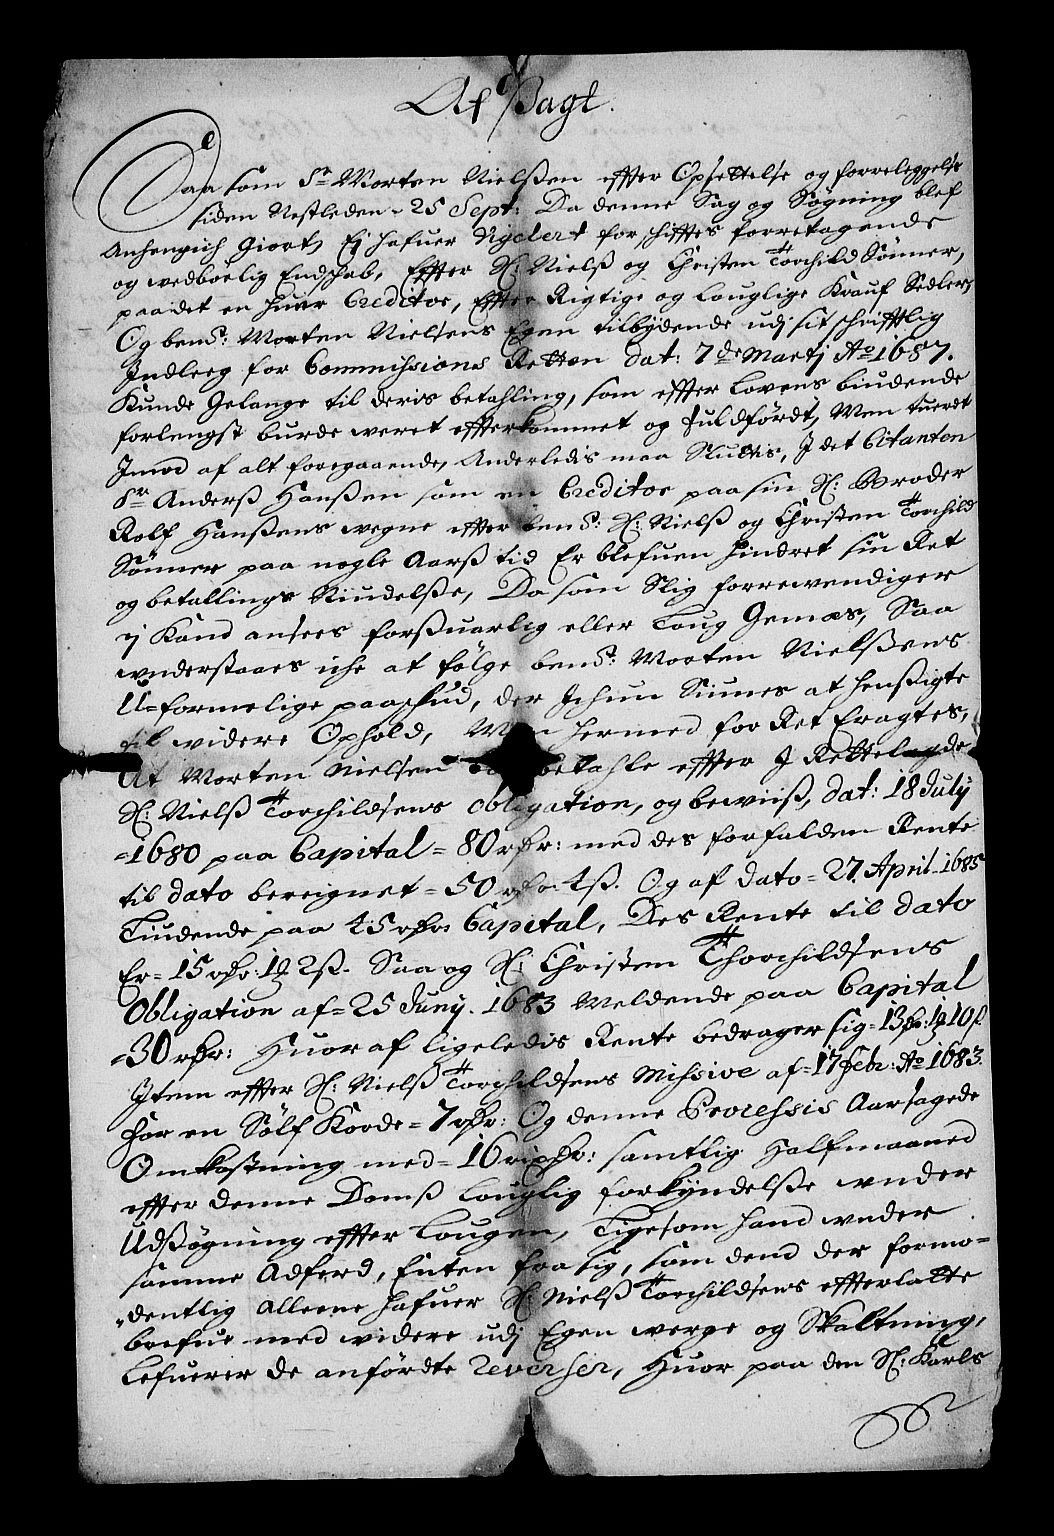 Af Sagt.
Saa som Sr Morten Nielssen effter Opsettelse og forreleggelse
siden Nestleden 25 Sept: Da denne Sag og Søgning blef
Anhengich Giort, Ej hafuer forschiftes forretagende
og wedboelig Endschab, Effter Sl: Nielss og Christen Torchild Sønner,
paadet en huer Creditor, Effter Rigtige og louglige Krauf Sedler,
Og bend: Morten Nielsens Egen tilbydende udj sit schrifftlig
Indleeg for Commissions Retten dat: 7de Martj Ao 1687.
Kunde Gelange til deris betahling, som effter Lovens biudende
forlengst burde weret effterkommet og fuldfördt, Men tuerdt
Imod af alt foregaaende, Anderledis maa Sluttis, J det Citanten
Sr Anderss Hanssen som en Creditor paa sin Sl: Broder
Rolf Hanssens wegne effter bend: Sl: Nielss og Christen Torchild
Sønner paa nogle Aarss tid Er blefuen hindret sin Ret
og betallings Niudelsse, Da som Slig forrewendiger
ej Kand ansees forssuarlig eller Loug Gemæs, Saa
wnderstaaes iche at følge bend: Morten Nielssens
U-formelige paaschud, der Ichun Siunes at henssigte
til widere Ophold, Men hermed for Ret Eragtes,
At Morten Nielsen bør betahle effter J Rettelagde
Sl: Nielss Torchildsens Obligation, og bewiiss, dat: 18 July
1680 paa Capital = 80 rdr: med des forfalden Rente
til dato bereignet = 50 rdr: 4ss. Og af dato = 27. April 1685
Liudende paa 45 rdr: Capital, Des Rente til dato
Er = 15 rdr: 1 2ss. Saa og Sl: Christen Thorchildsens
Obligation af = 25 Juny. 1683 Meldende paa Capital
= 30 rdr: Huor af ligeledis Rente bedrager sig = 13 10 s
Item effter Sl: Nielss Torchildsens Missive af = 17 Febr: Ao 1683.
for en Sølf Koode = 7 rdr: Og denne Processis Aarsagede
Omkostning med = 16 samtlig Halfmaaned
effter denne Domss Louglig forkyndelsse wnder
Udssøgning effter Lougen, Ligesom hand wnder
samme Adferd, Enten fra sig, som dend der formo-
dentlig alleene hafuer Sl: Nielss Torchildsens effterlatte
boefue med widere udj Egen werge og Skaltning,
Lefuerer de anfördte Reverser, Huor paa den Sl: Karls